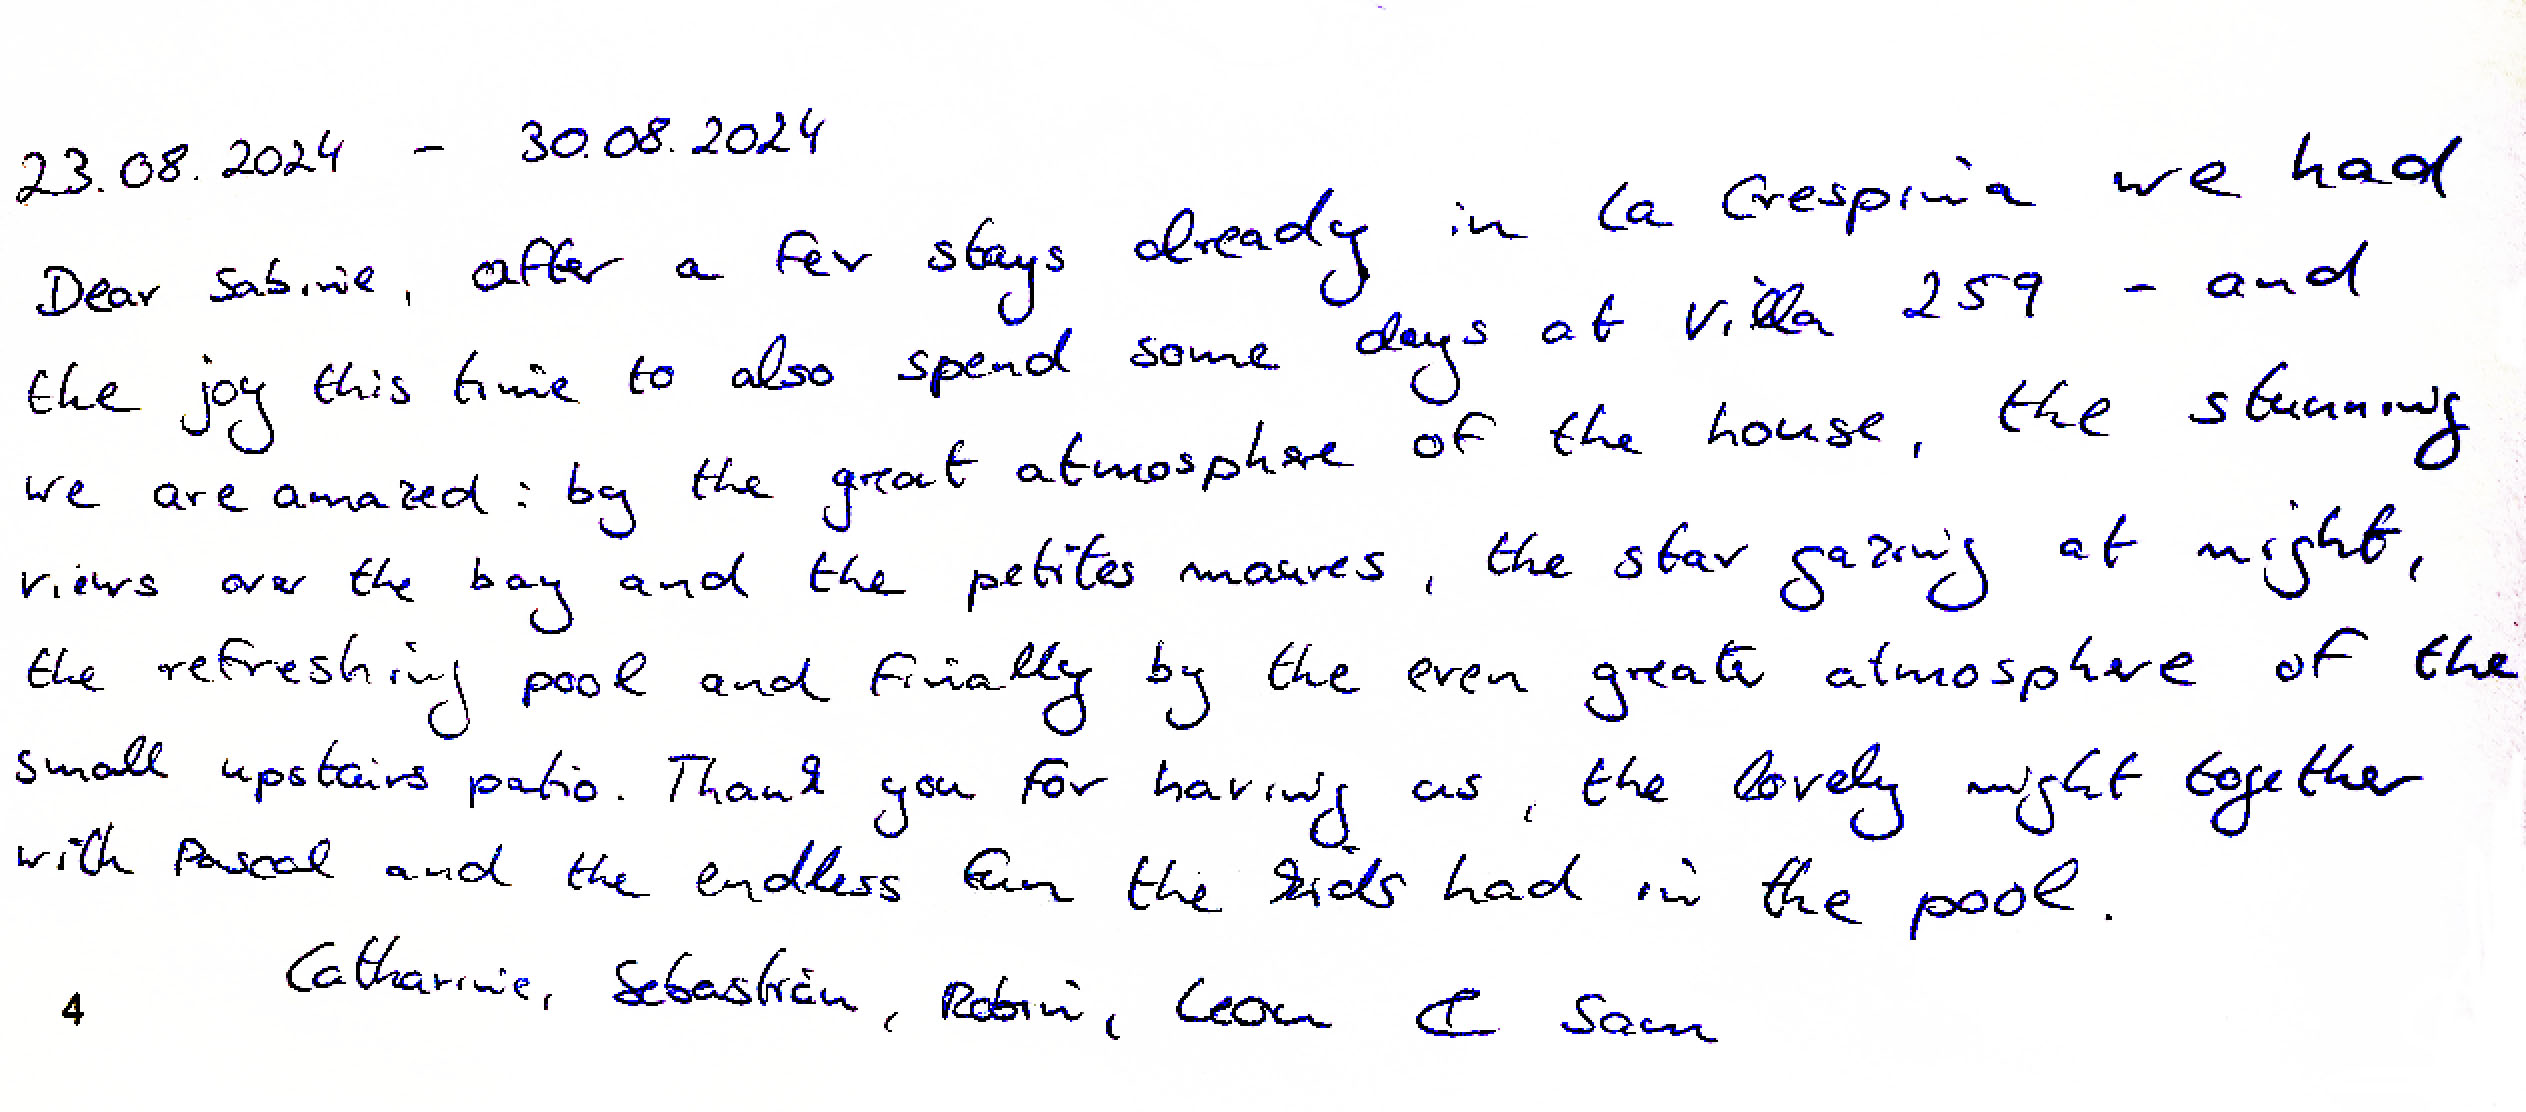 23.08.2024 - 30.08.2024
Dear Sabine, after a few stays already in La Crespinia we had
the joy this time to also spend some days at Villa 259 - and
we are amazed: by the great atmosphere of the house, the stunning
views over the bay and the petites maures, the star gazing at night,
the refreshing pool and finally by the even greater atmosphere of the
small upstairs patio. Thank you for having us, the lovely night together
with Pascal and the endless fun the kids had in the pool.
Catharine, Sebastian, Robin, Leon & Sam
4